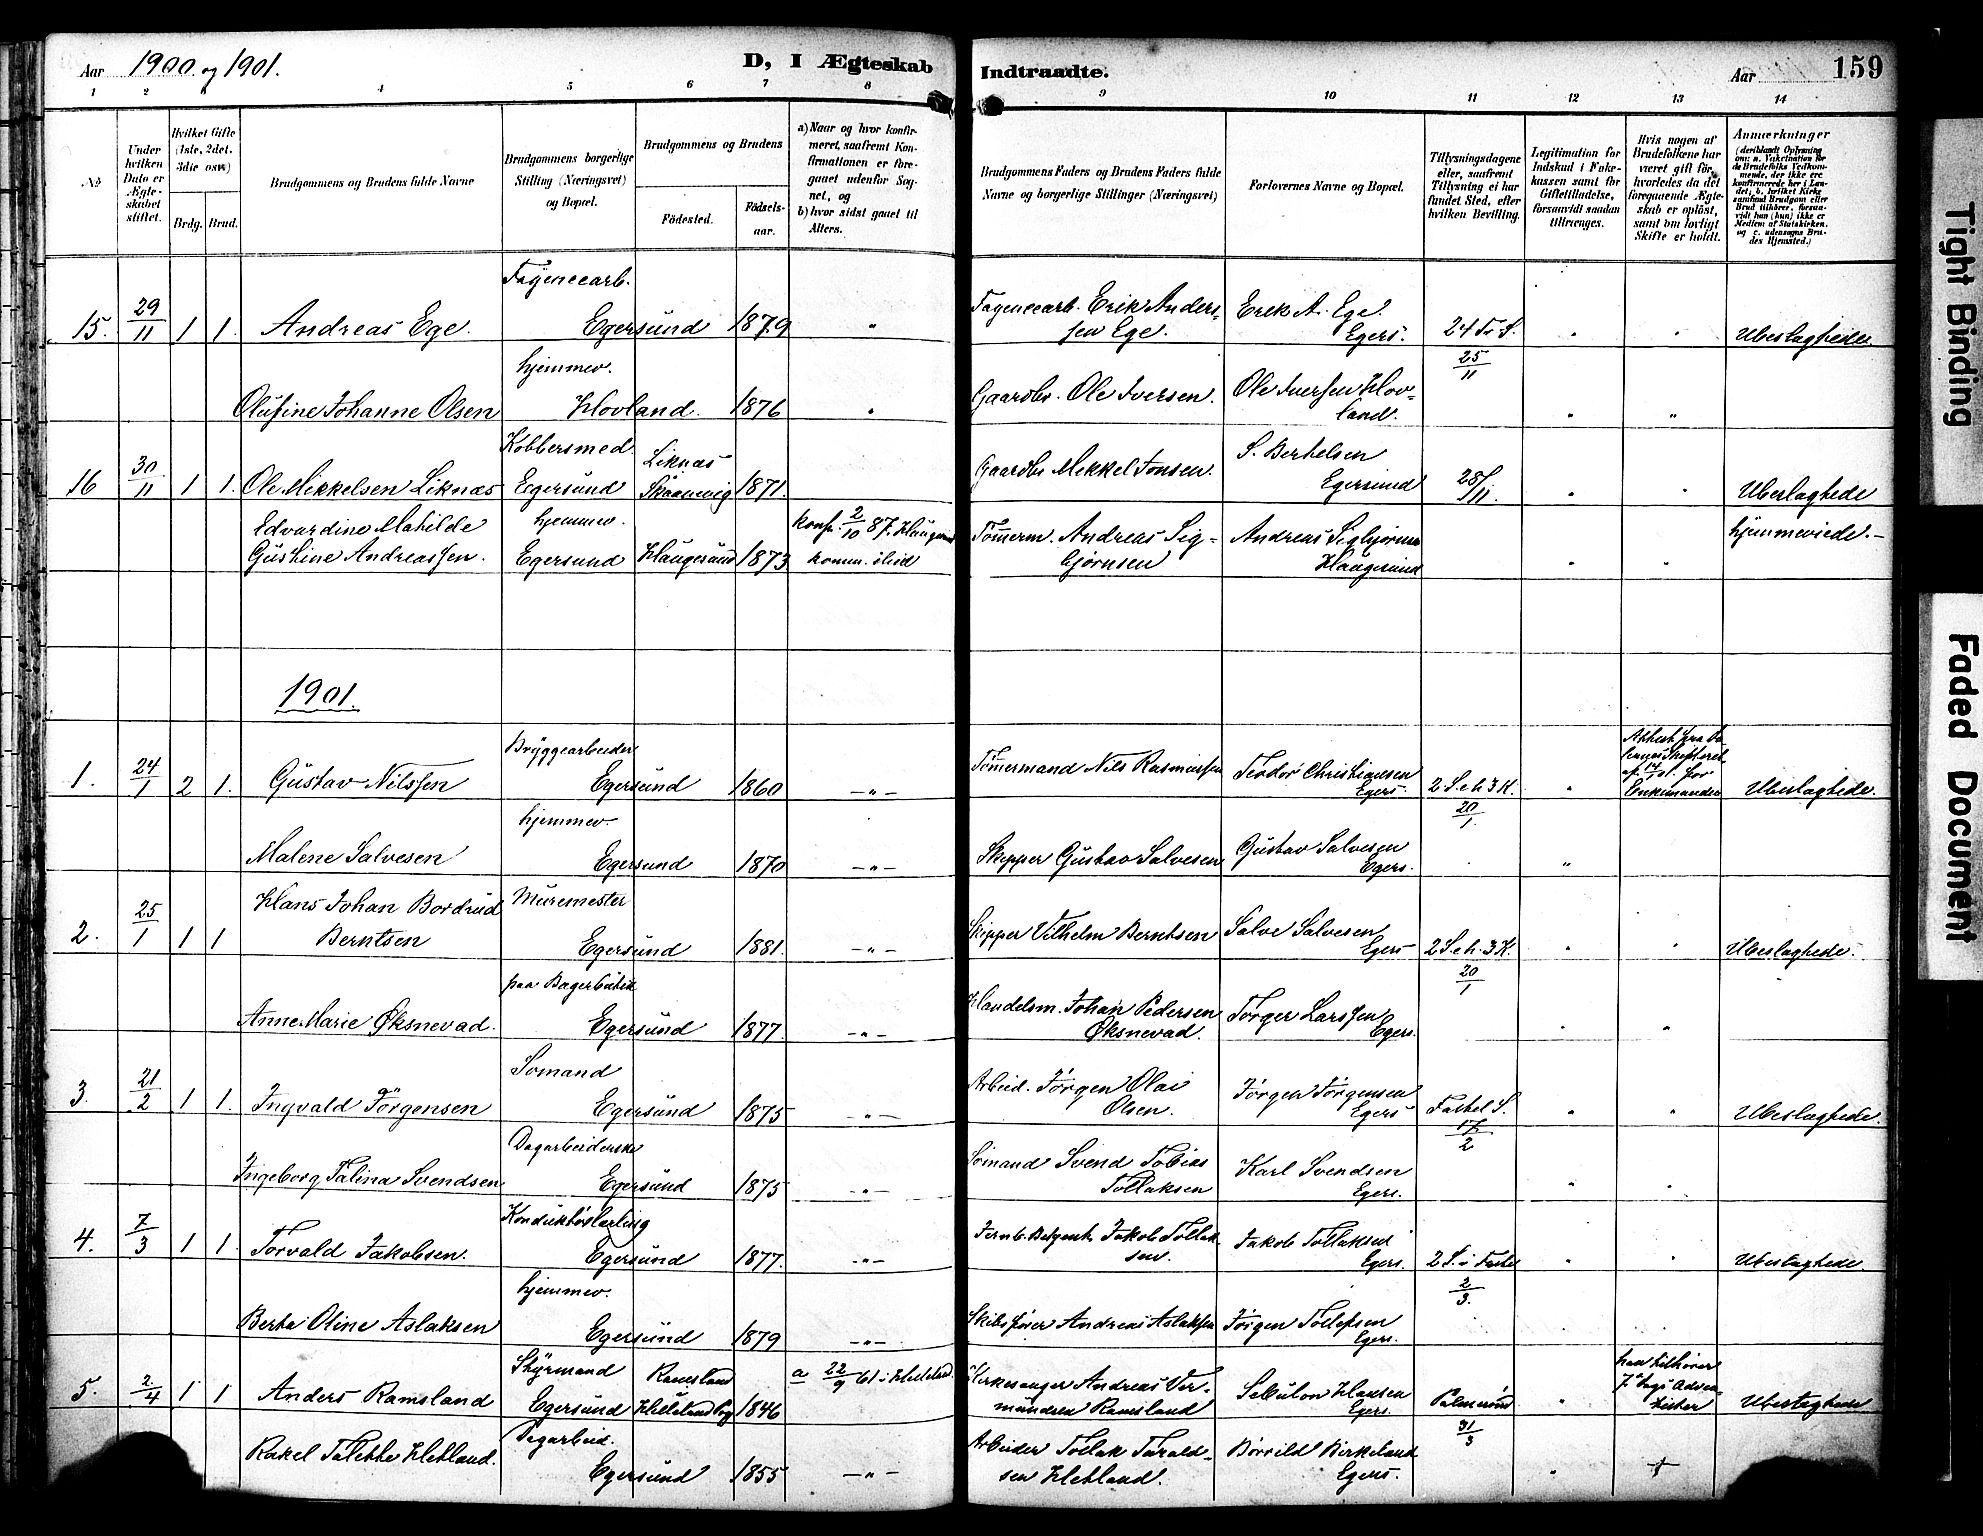 Aar 1900. og 1901.
D, I Ægteskab
Indtraadte.
Aar
159
1 2 3 4 5 6 7 8 9 10 11 12 13 14
No.
Under hvilken Dato er Ægteskabet stiftet.
Hvilket Gifte (1ste, 2det, 3die osv.)
Brdg. Brud.
Brudgommens og Brudens fulde Navne
Brudgommens borgerlige Stilling (Næringsvei) og Bopæl.
Brudgommens og Brudens
Fødested.
Fødselsaar.
a) Naar og hvor konfirmeret, saafremt Konfirmationen er foregaaet udenfor Sognet, og
b) hvor sidst gaaet til Alters.
Brudgommens Faders og Brudens Faders fulde Navne og borgerlige Stillinger (Næringsvei)
Forlovernes Navne og Bopæl.
Tillysningsdagene eller, saafremt Tillysning ei har fundet Sted, efter hvilken Bevilling.
Legitimation for Indskud i Enkekassen samt for Giftetilladelse, forsaavidt saadan tiltrænges.
Hvis nogen af Brudefolkene har været gift før, hvorledes da det foregaaende Ægteskab er opløst, samt om lovligt Skifte er holdt.
Anmærkninger
15. 29/11 1 1. Andreas Ege. Fayencearb. Egersund 1879 " Fayencearb. Erik Anderssen Ege. Erik A. Ege. Egers. 24 Tr. S. 25/11 " " Ubeslægtede
Olufine Johanne Olsen hjemmev. Hovland. 1876 " Gaardbr. Ole Iversen. Ole Iversen Hovland. " "
16 30/11 1 1. Ole Mikkelsen Liknæs Kobbersmed. Egersund Liknæs Skaanevig 1871. Gaardbr. Mekkel Jonsen. S. Berhelsen Egersund 28/11. " " Ubeslægtede
Edvardine Matilde Gustine Andreassen. hjemmev. Egersund Haugesund 1873 konf. 2/10 87. Haugesund komm. ilid Tømerm. Andreas Sigbjørnsen Andreas Sigbjørnsen Haugesund " " hjemmeviede.-
1901.
1. 24/1 2 1. Gustav Nilssen Bryggearbeider Egersund 1860 -"- Tømermand Nils Rasmussen Teodor Christiansen Egers. 2 S. e. h. 3 K. 20/1. " Ubeslægtede.
Malene Salvesen hjemmev. Egersund 1870 -"- Skipper Gustav Salvesen Gustav Salvesen Egers. "
2. 25/1 1 1 Hans Johan Bordrud Berntsen Muremester Egersund 1881. -"- Skipper Vilhelm Berntsen Salve Salvesen Egers 2 S. e. h. 3 K. 20/1 " " Ubeslægtede.
Anne Marie Øksnevad. paa Bagerbutik Egersund 1877. -"- Handelsm. Johan Pedersen Øksnevad. Torger Larssen Egers. " "
3. 21/2 1 1. Ingvald Jörgensen Sømand Egersund 1875 -"- Arbeid. Jørgen Olai Olsen. Jørgen Jørgensen Egers Fastel. S. 17/2 " " Ubeslægtede.
Ingeborg Talina Svendsen Dagarbeiderske Egersund 1875 -"- Sømand Svend Tobias Tollaksen Karl Svendsen Egers. " "
4. 7/3 1 1. Torvald Jakobsen. Konduktörlærling Egersund 1877. -"- Jernb. Betjent Jakob Tollaksen. Jakob Tollaksen Egers. 2 S. i Faste 2/3. " " Ubeslægtede.
Berta Oline Aslaksen hjemmev. Egersund 1879 -"- Skibsfører Andreas Aslaksen Jørgen Tollefsen Egers.
5. 2/4 1 1 Anders Ramsland Styrmand Egersund Ramsland Helleland Prg 1846 a 22/9 61 i Helleland. Kirkesanger Andreas Vermundsen Ramsland Sebulon Hansen Egers. Palmesønd 31/3 " han tilhører 7 Dags Adventister Ubeslægtede
Rakel Talette Hetland. Dagarbeid. Egersund 1855 -"- Arbeider Tollak Taraldsen Hetland. Børrild Birkeland Egers. "
Tight Binding
Faded Document